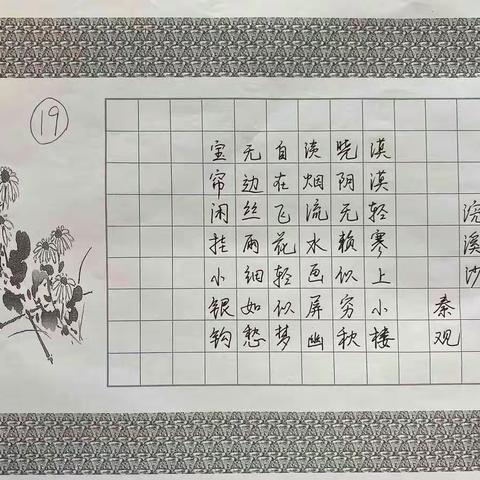 浣溪沙
秦观
漠漠轻寒上小楼
晓阴无赖似穷秋
淡烟流水画屏幽
自在飞花轻似梦
无边丝雨细如愁
宝帘闲挂小银钩
19